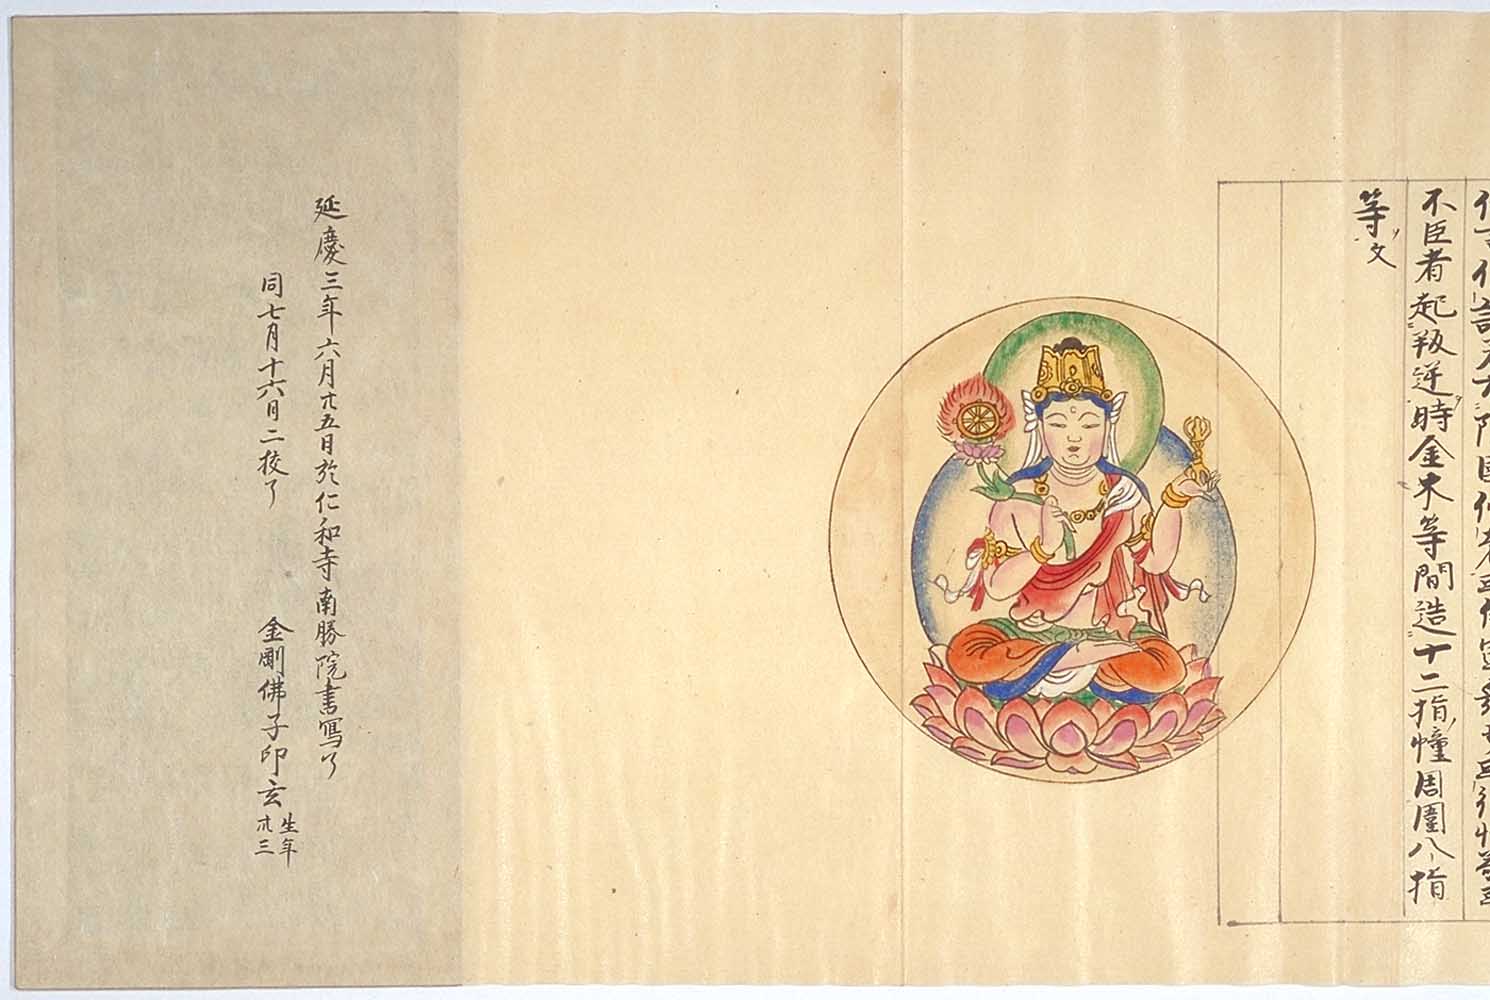 不臣者起叛逆時金木等間造十二指幢周圍八指
等文
延慶三年六月廿五日於仁和寺南勝院書寫了
同七月十六日二挍了
金剛佛子印玄生年廿三